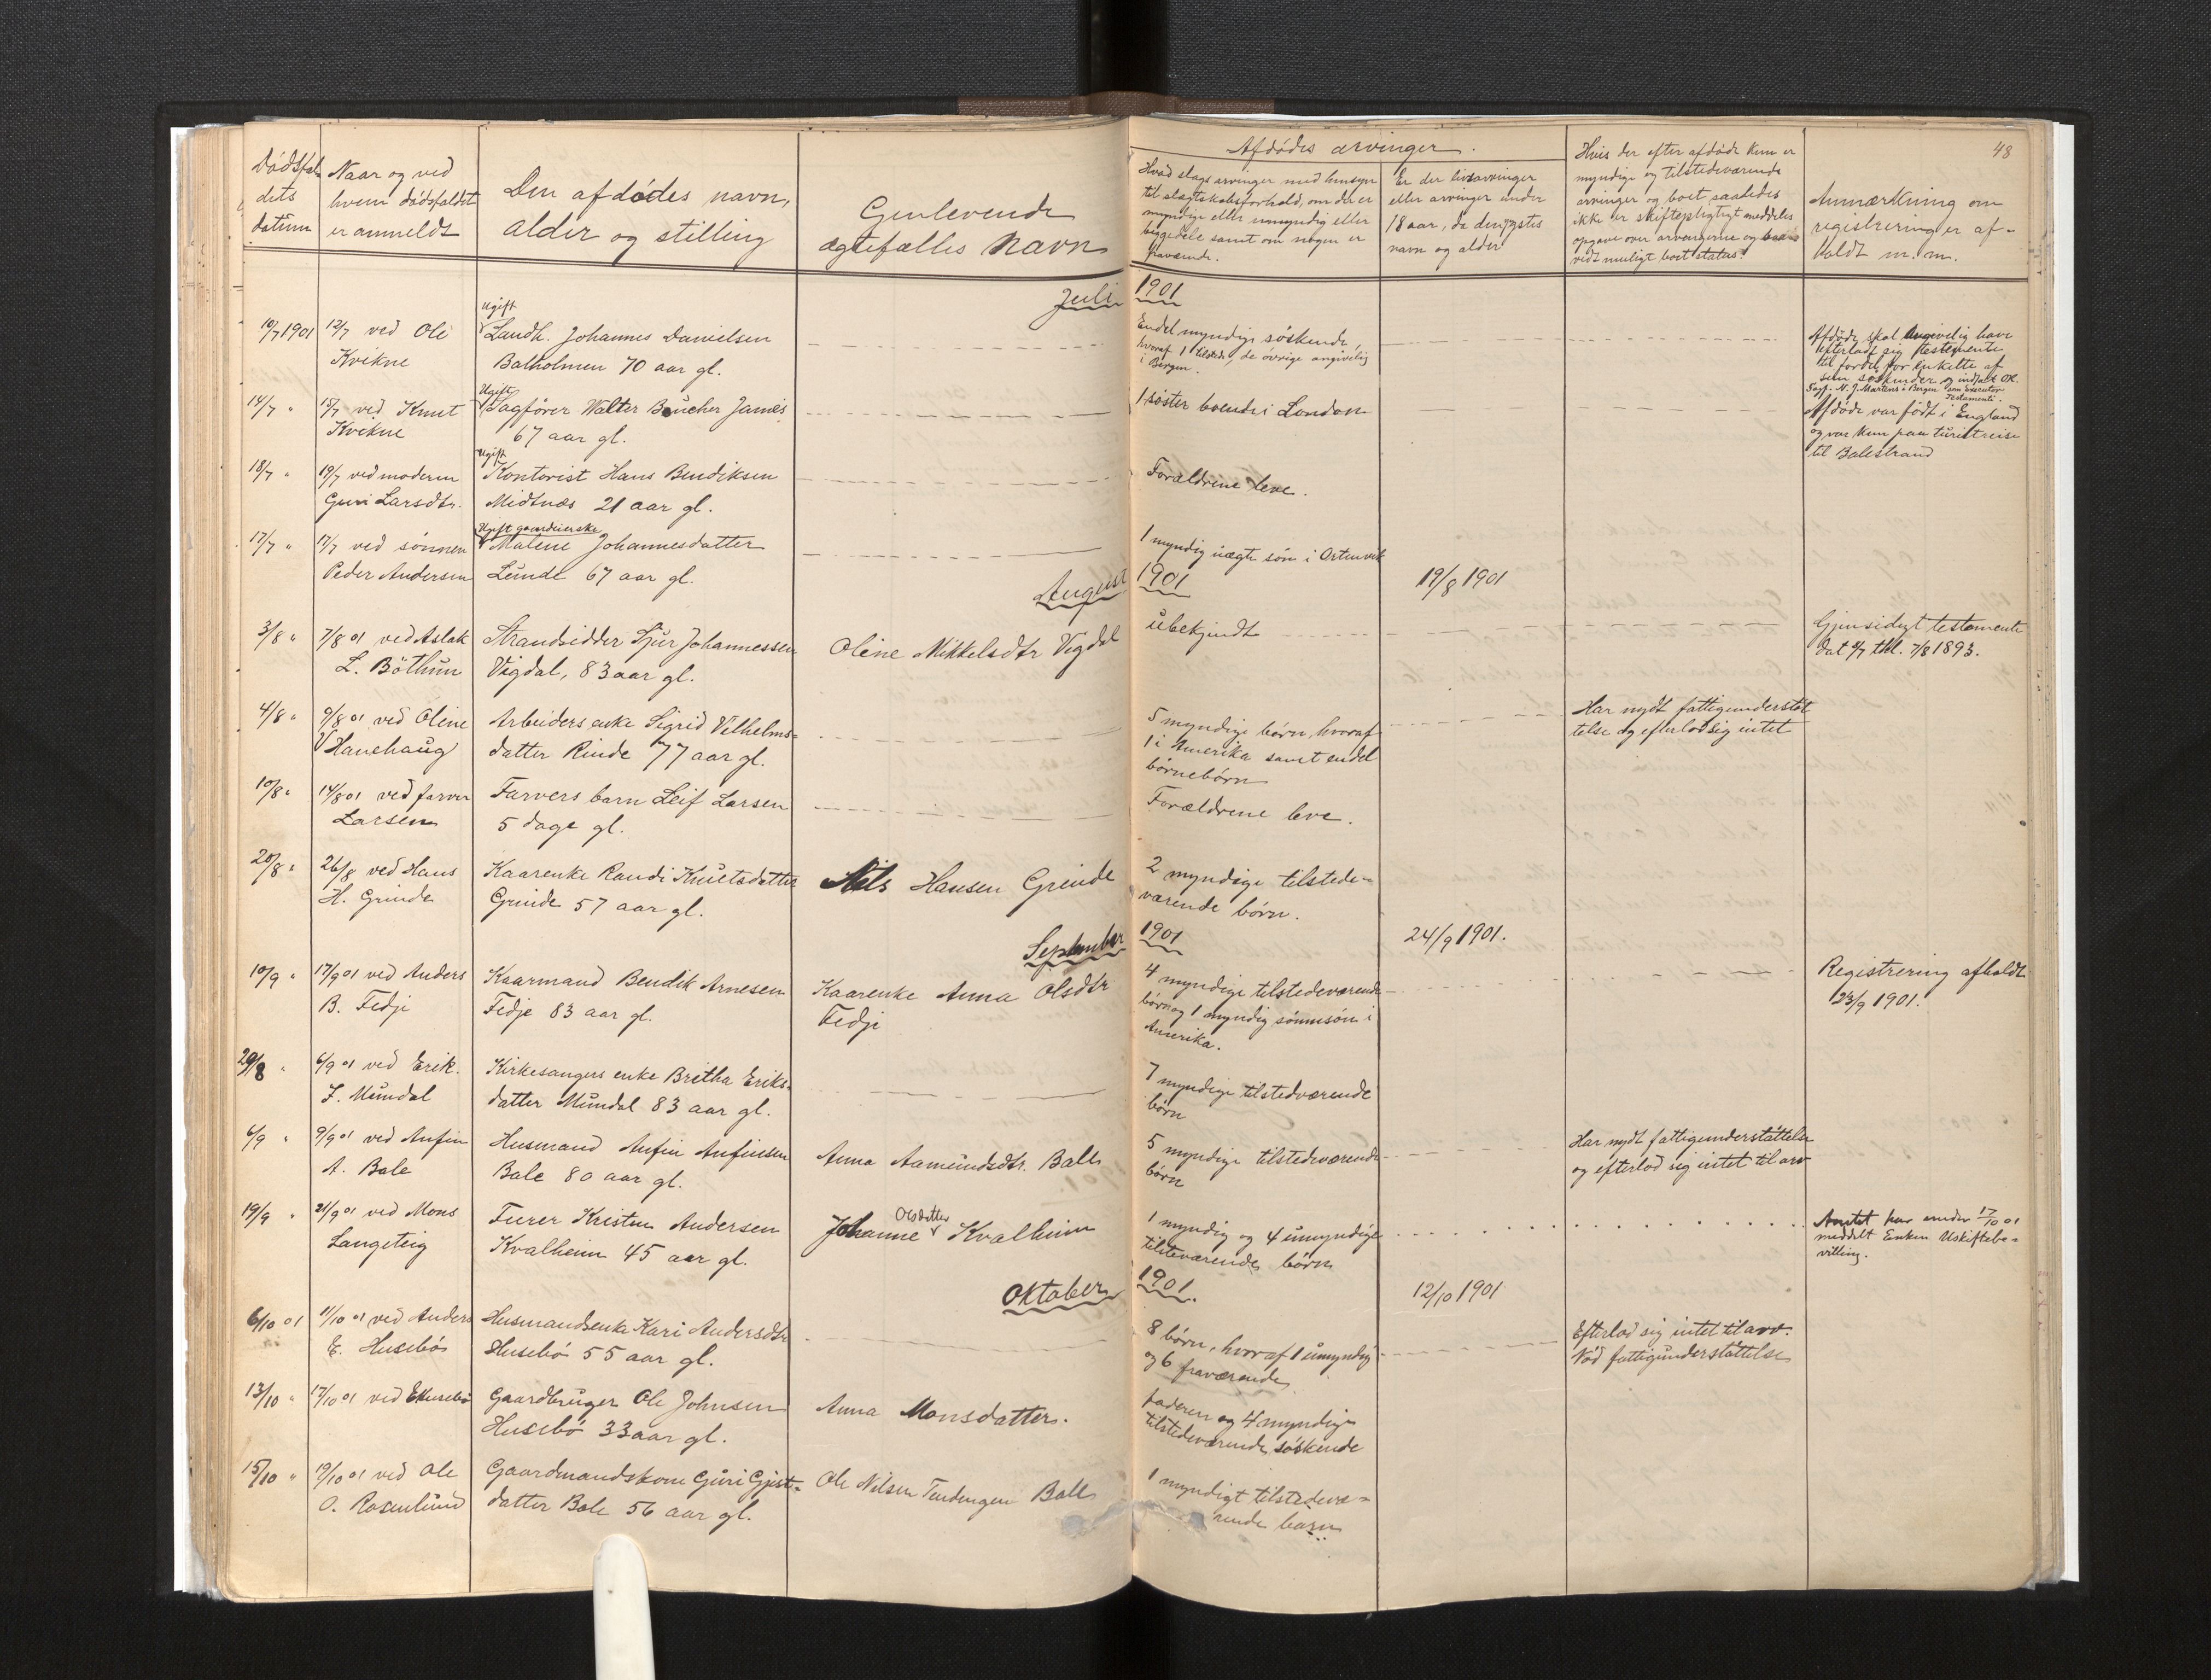 48
Dödsfal-
dets
datum
Naar og ved
hvem dödsfaldet
er anmeldt
Den afdödes navn,
alder og stilling
Genlevende
ægtefælles navn
Afdödes arvinger.
Hvad slags arvinger med hensyn
til slægtskabsforhold, om de er
myndige eller umyndig eller
beggedele samt om nogen er
fraværende.
Er der livsarvinger
eller arvinger under
18 aar, da den yngstes
navn og alder
Hvis der efter afdöde kun er
myndige og tilstedeværende
arvinger og boet saaledes
ikke er skiftepligtigt meddeles
opgave over arvingerne og saa-
vidt muligt boet status.
Anmærkning om
registrering er af-
holdt m.m.
Juli 1901
10/7 1901
12/7 ved Ole
Kvikne
Ugift
Landh. Johannes Danielsen
Balholmen 70 aar gl.
Endel myndige söskende,
hvoraf 1 tilstede, de övrige angivelig
i Bergen.
Afdöde skal angivelig have
efterladt sig testemente
til fordel for enkelte af
sine söskender og indsat OR.
Sagf. N. J. Martens i Bergen som Executor
Testamenti.
14/7 "
15/7 ved Knut
Kvikne
Ugift
Sagförer Walter Boucher James
67 aar gl.
1 söster boende i London
Afdöde var födt i England
og var kun paa turistreise
til Balestrand
18/7 "
19/7 ved moderen
Guri Larsdtr.
Ugift
Kontorist Hans Bendiksen
Midtnæs 21 aar gl.
Forældrene leve.
17/7 "
17/7 ved sönnen
Peder Andersen
Ugift gaardeierske
Malene Johannesdatter
Lunde 67 aar gl.
1 myndig uægte sön i Ortnevik
August 1901
19/8 1901
3/8 "
7/8 01 ved Aslak
L. Böthun
Strandsidder Sjur Johannessen
Vigdal, 83 aar gl.
Oline Mikkelsdtr Vigdal
ubekjendt
Gjensidigt testamente
dat. thl. 7/8 1893.
4/8 "
9/8 01 ved Oline
V Hanehaug
Arbeiders enke Sigrid Vilhelms-
datter Rinde 77 aar gl.
5 myndige börn, hvoraf
1 i Amerika samt endel
börnebörn
Har nydt fattigunderstöt
telse og efterlod sig intet
10/8 "
14/8 01 ved farver
Larsen
Farvers barn Leif Larsen
5 dage gl.
Forældrene leve.
20/8 "
26/8 ved Hans
H. Grinde
Kaarenke Randi Knutsdatter
Grinde 57 aar gl.
Nils Hansen Grinde
2 myndige tilstede-
værende börn.
September 1901
24/9 1901.
10/9 "
17/9 01 ved Anders
B. Fedje
Kaarmand Bendik Arnesen
Fedje 83 aar gl.
Kaarenke Anna Olsdtr
Fedje
4 myndige tilstedeværende
börn og 1 myndig sönnesön i
Amerika.
Registrering afholdt
23/9 1901.
29/8 "
6/9 01 ved Erik
J. Mundal
Kirkesangers enke Bretha Eriks-
datter Mundal 83 aar gl.
7 myndige tilstedværende
börn
6/9 "
9/9 01 ved Anfin
A. Bale
Husmand Anfin Anfinsen
Bale 80 aar gl.
Anna Aamundsdtr. Bale
5 myndige tilstedeværende
börn
Har nydt fattigunderstöttelse
og efterlod sig intet til arv
19/9 "
21/9 01 ved Mons
Langeteig
Furer Kristen Andersen
Kvalheim 45 aar gl.
Olsdatter
Johanne Kvalheim
1 myndig og 4 umyndige
tilsteværende börn
Amtet har under 17/10 01
meddelt Enken Uskiftebe-
villing.
Oktober 1901.
12/10 1901
6/10 01
11/10 01 ved Anders
E. Husebö
Husmandsenke Kari Andersdtr
Husebö 55 aar gl.
8 börn, hvoraf 1 umyndig
og 6 fraværende
Efterlod sig intet til arv.
Nöd fattigunderstöttelse
13/10 "
17/10 01 ved E Husebö
Gaardbruger Ole Johnsen
Husebö 33 aar gl.
Anna Monsdatter.
Faderen og 4 myndige
tilstedeværende söskende
15/10 "
19/10 01 ved Ole
O. Rosenlund
Gaardmandskone Guri Gjest-
datter Bale 56 aar gl.
Ole Nilsen Bale
1 myndigt tilstedevæ-
rende barn